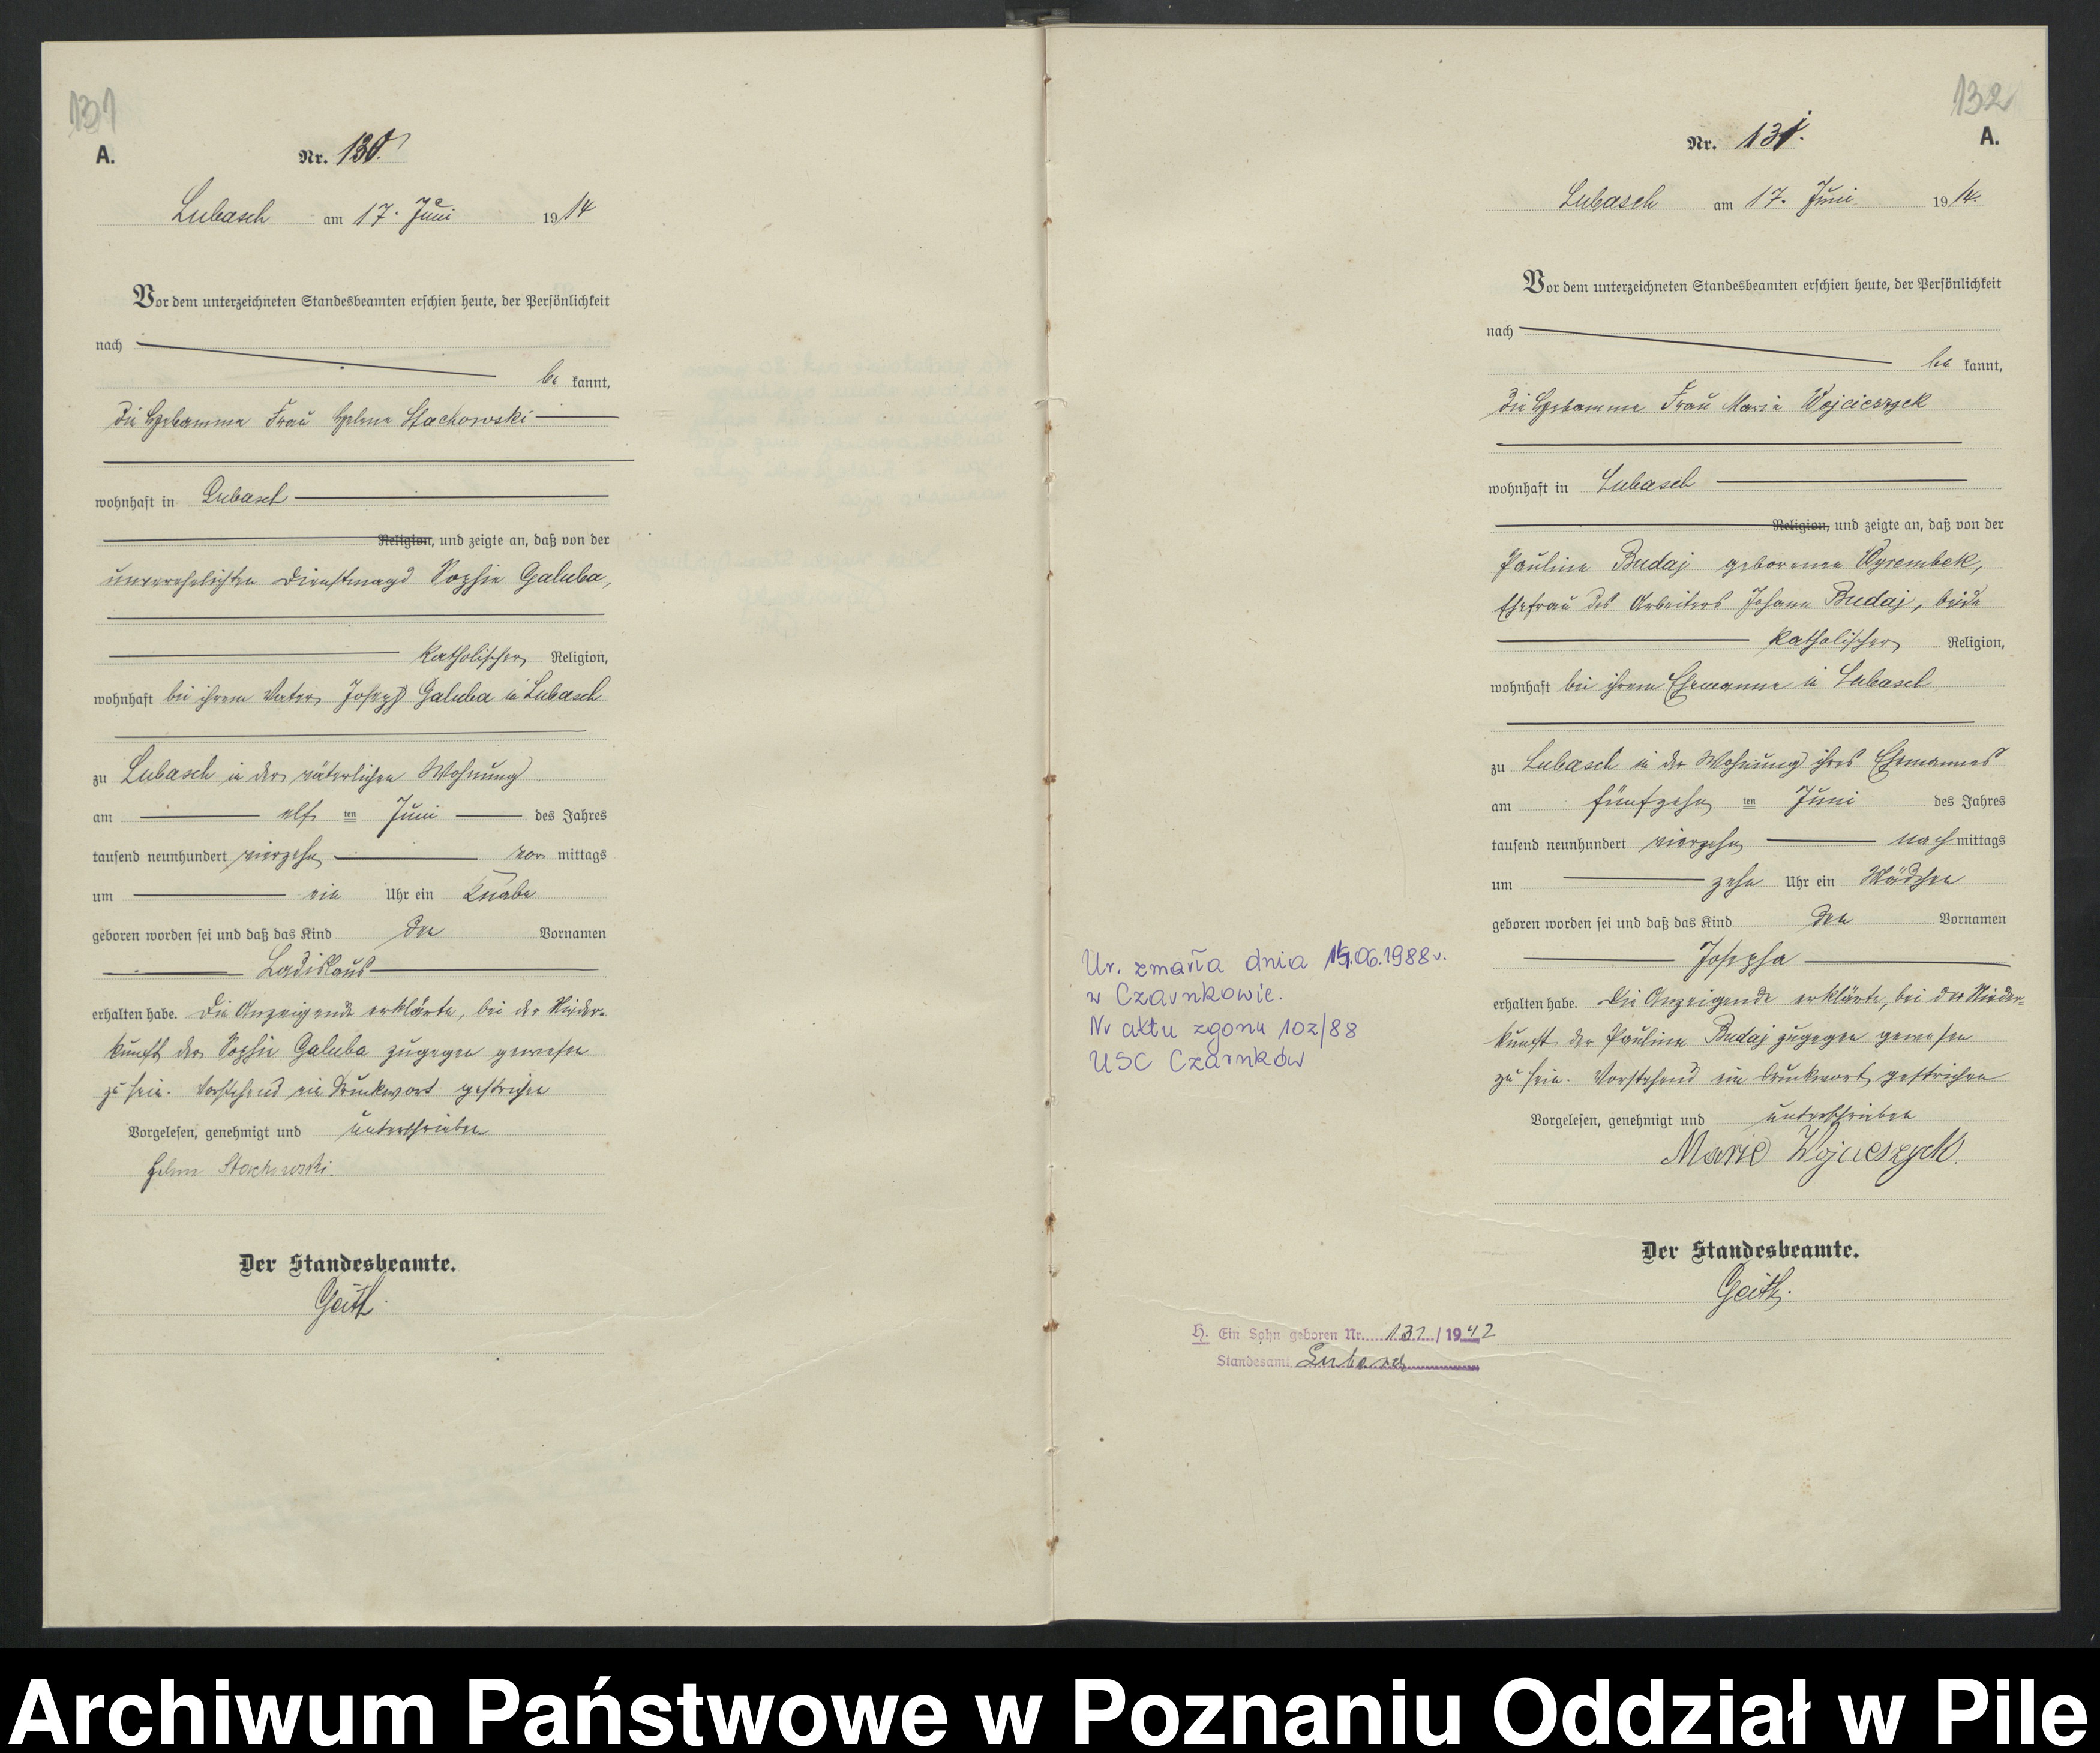 131
A.
Nr. 130.
Lubasch am 17. Juni 1914
Vor dem unterzeichneten Standesbeamten erschien heute, der Persönlichkeit
nach
be kannt,
die Hebamme Frau Helene Stachowski
wohnhaft in Lubasch
Religion, und zeigte an, daß von der
unverehelichten Dienstmagd Sophie Galuba,
katholischer Religion,
wohnhaft bei ihrem Vater Joseph Galuba in Lubasch
zu Lubasch in der väterlichen Wohnung
am elf ten Juni des Jahres
tausend neunhundert vierzehn vor mittags
um ein Uhr ein Knabe
geboren worden sei und daß das Kind den Vornamen
Ladislaus
erhalten habe. Die Anzeigende erklärte, bei der Nieder-
kunft der Sophie Galuba zugegen gewesen
zu sein. Vorstehend ein Druckwort gestrichen
Vorgelesen, genehmigt und unterschrieben
Helene Stachowski.
Der Standesbeamte.
Geith.
132
A.
Nr. 131.
Lubasch am 17. Juni 1914.
Vor dem unterzeichneten Standesbeamten erschien heute, der Persönlichkeit
nach
be kannt,
die Hebamme Frau Maria Wojcieszyck
wohnhaft in Lubasch
Religion, und zeigte an, daß von der
Pauline Budaj geborenen Wyrembek,
Ehefrau des Arbeiters Johann Budaj, beide
katholischer Religion,
wohnhaft bei ihrem Ehemanne in Lubasch
zu Lubasch in der Wohnung ihres Ehemannes
am fünfzehn ten Juni des Jahres
tausend neunhundert vierzehn nach mittags
um zehn Uhr ein Mädchen
geboren worden sei und daß das Kind den Vornamen
Josepha
erhalten habe. Die Anzeigende erklärte, bei der Nieder-
kunft der Pauline Budaj zugegen gewesen
zu sein. Vorstehend ein Druckwort gestrichen
Vorgelesen, genehmigt und unterschrieben
Marie Wojcieszyck.
Der Standesbeamte.
Geith.
Ur. zmarła dnia .06.1988r.
w Czarnkowie.
Nr aktu zgonu 102/88
USC Czarnków
H. Ein Sohn geboren Nr. 131/1942
Standesamt Lubasch
Archiwum Państwowe w Poznaniu Oddział w Pile